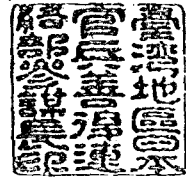 臺灣地區日本
官兵善後連
絡部參謀長印